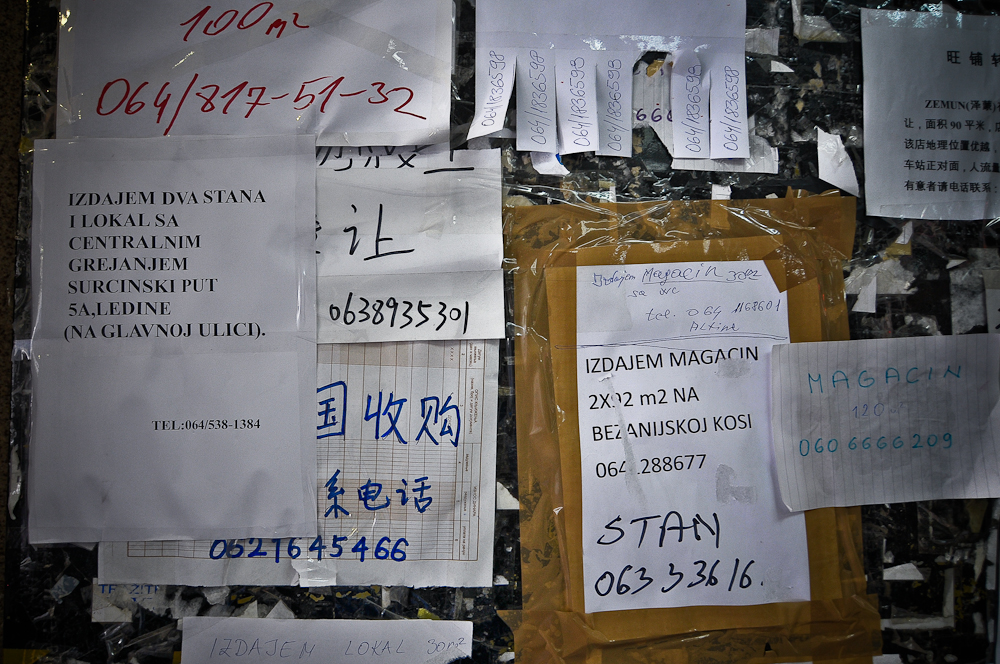 100m²
064/817-51-32
064/836598
064/836598
064/836598
064/836598
064/836598
064/836598
旺 铺
ZEMUN(泽蒙)
让，面积 90 平米，
该店地理位置优越，
车站正对面，人流
有意者请电话联系：
IZDAJEM DVA STANA
I LOKAL SA
CENTRALNIM
GREJANJEM
SURCINSKI PUT
5A,LEDINE
(NA GLAVNOJ ULICI).
TEL:064/538-1384
让
0638935301
国收购
系电话
0621645466
Izdajem Magacin 30m2
sa wc
tel. 064 1168601
IZDAJEM MAGACIN
2X92 m2 NA
BEZANIJSKOJ KOSI
064 288677
STAN
063 33616.
MAGACIN
120
060 6666 209
IZDAJEM LOKAL 30m²